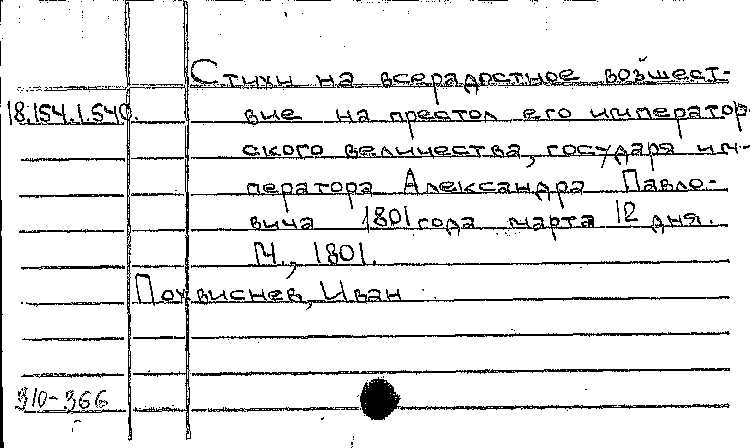 Стихи на всерадостное возшест-
18.154.1.540. вие на престол его император-
ского величества, государя им-
ператора Александра Павло-
вича 1801 года марта 12 дня.
М., 1801.
Похвиснев, Иван
310-366